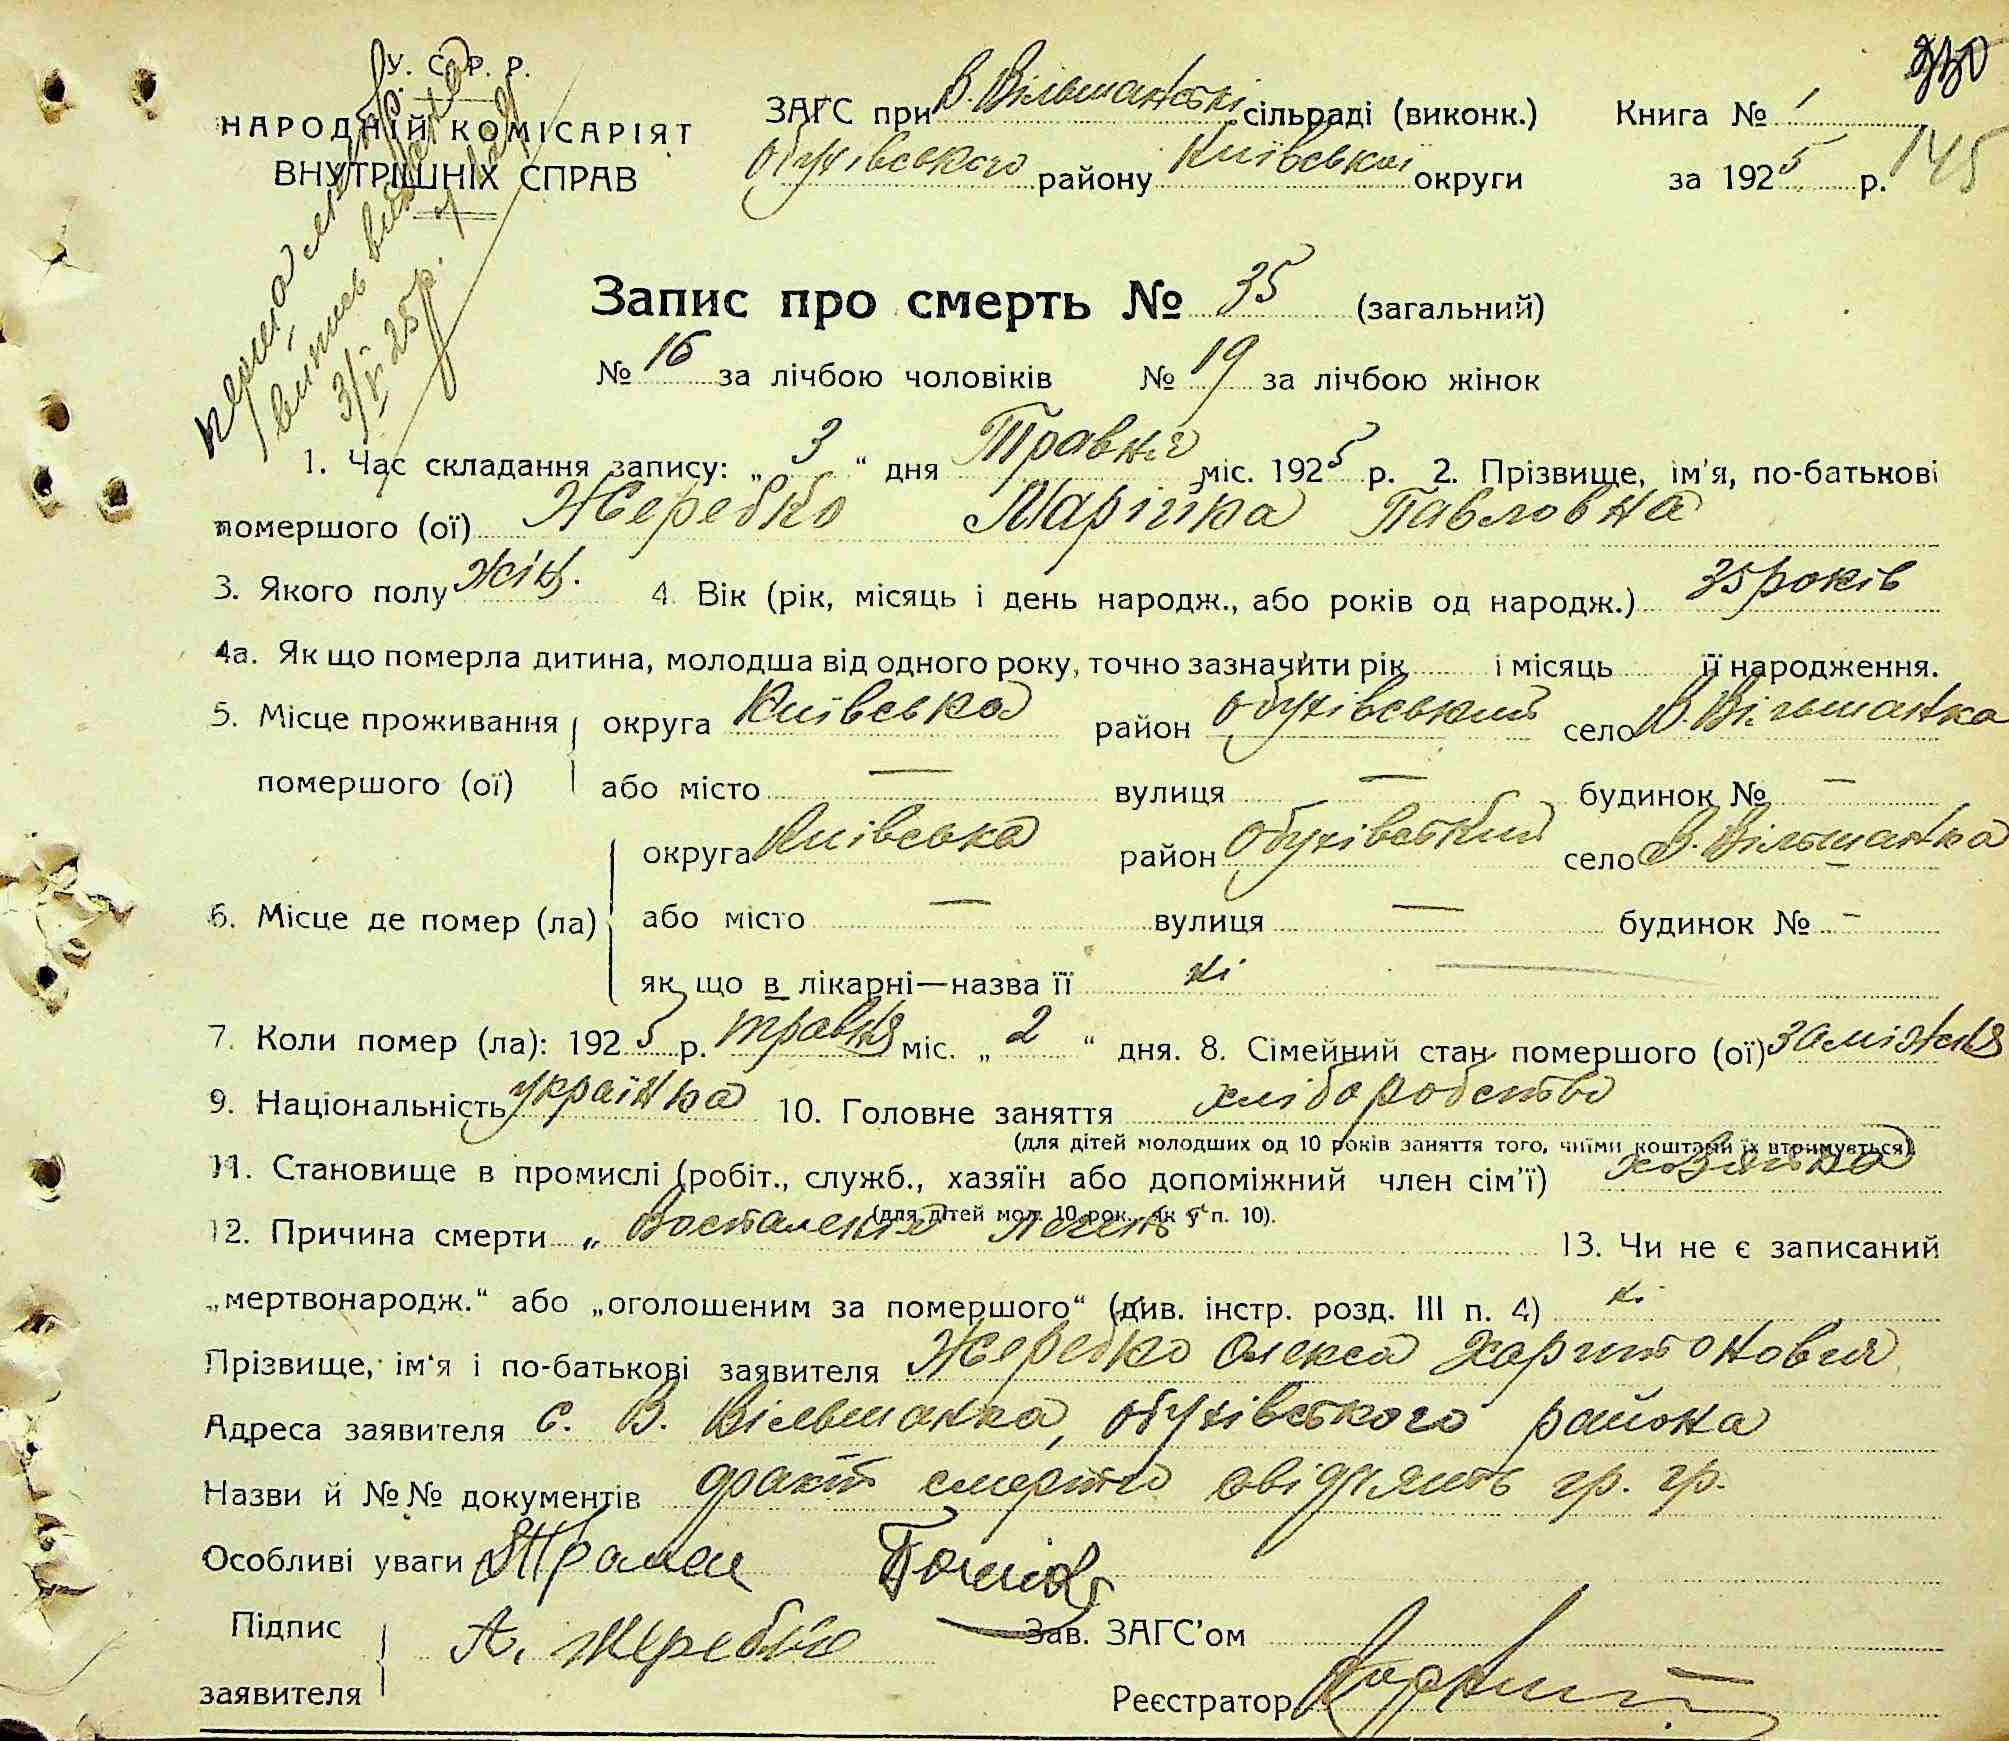 У. С. Р. Р.
НАРОДНІЙ КОМІСАРІЯТ
ВНУТРІШНІХ СПРАВ
ЗАГС при В. Вільшанські сільраді (виконк.) Книга № 1
обухівського району Київської округи за 1925 р. 145
Запис про смерть № 35 (загальний)
№ 16 за лічбою чоловіків № 19 за лічбою жінок
3/V 25 р.
1. Час складання запису: „3“ дня Травня міс. 1925 р. 2. Прізвище, ім'я, по-батькові
помершого (ої) Жеребко Марійка Павловна
3. Якого полу жін. 4. Вік (рік, місяць і день народж., або років од народж.) 35 років
4а. Як що померла дитина, молодша від одного року, точно зазначити рік і місяць її народження.
5. Місце проживання округа Київська район обухівський село В. Вільшанка
помершого (ої) або місто — вулиця — будинок № —
округа Київська район Обухівський село В. Вільшанка
6. Місце де помер (ла) або місто — вулиця — будинок № —
як що в лікарні—назва її ні
7. Коли помер (ла): 1925 р. травня міс. „2“ дня. 8. Сімейний стан помершого (ої) заміжня
9. Національність українка 10. Головне заняття хліборобство
(для дітей молодших од 10 років заняття того, чиїми коштами їх втримується)
11. Становище в промислі (робіт., служб., хазяїн або допоміжний член сім'ї) хозяйка
(для дітей мол. 10 рок., як у п. 10).
12. Причина смерти „ Воспаленія 13. Чи не є записаний
„мертвонародж.“ або „оголошеним за помершого“ (див. інстр. розд. III п. 4) ні
Прізвище, ім'я і по-батькові заявителя Жеребко Олекса Харитонович
Адреса заявителя с. В. Вільшанка, обухівського района
Назви й №№ документів факт смерти свідчать гр. гр.
Особливі уваги
Підпис А. Жеребко Зав. ЗАГС'ом
заявителя Реєстратор